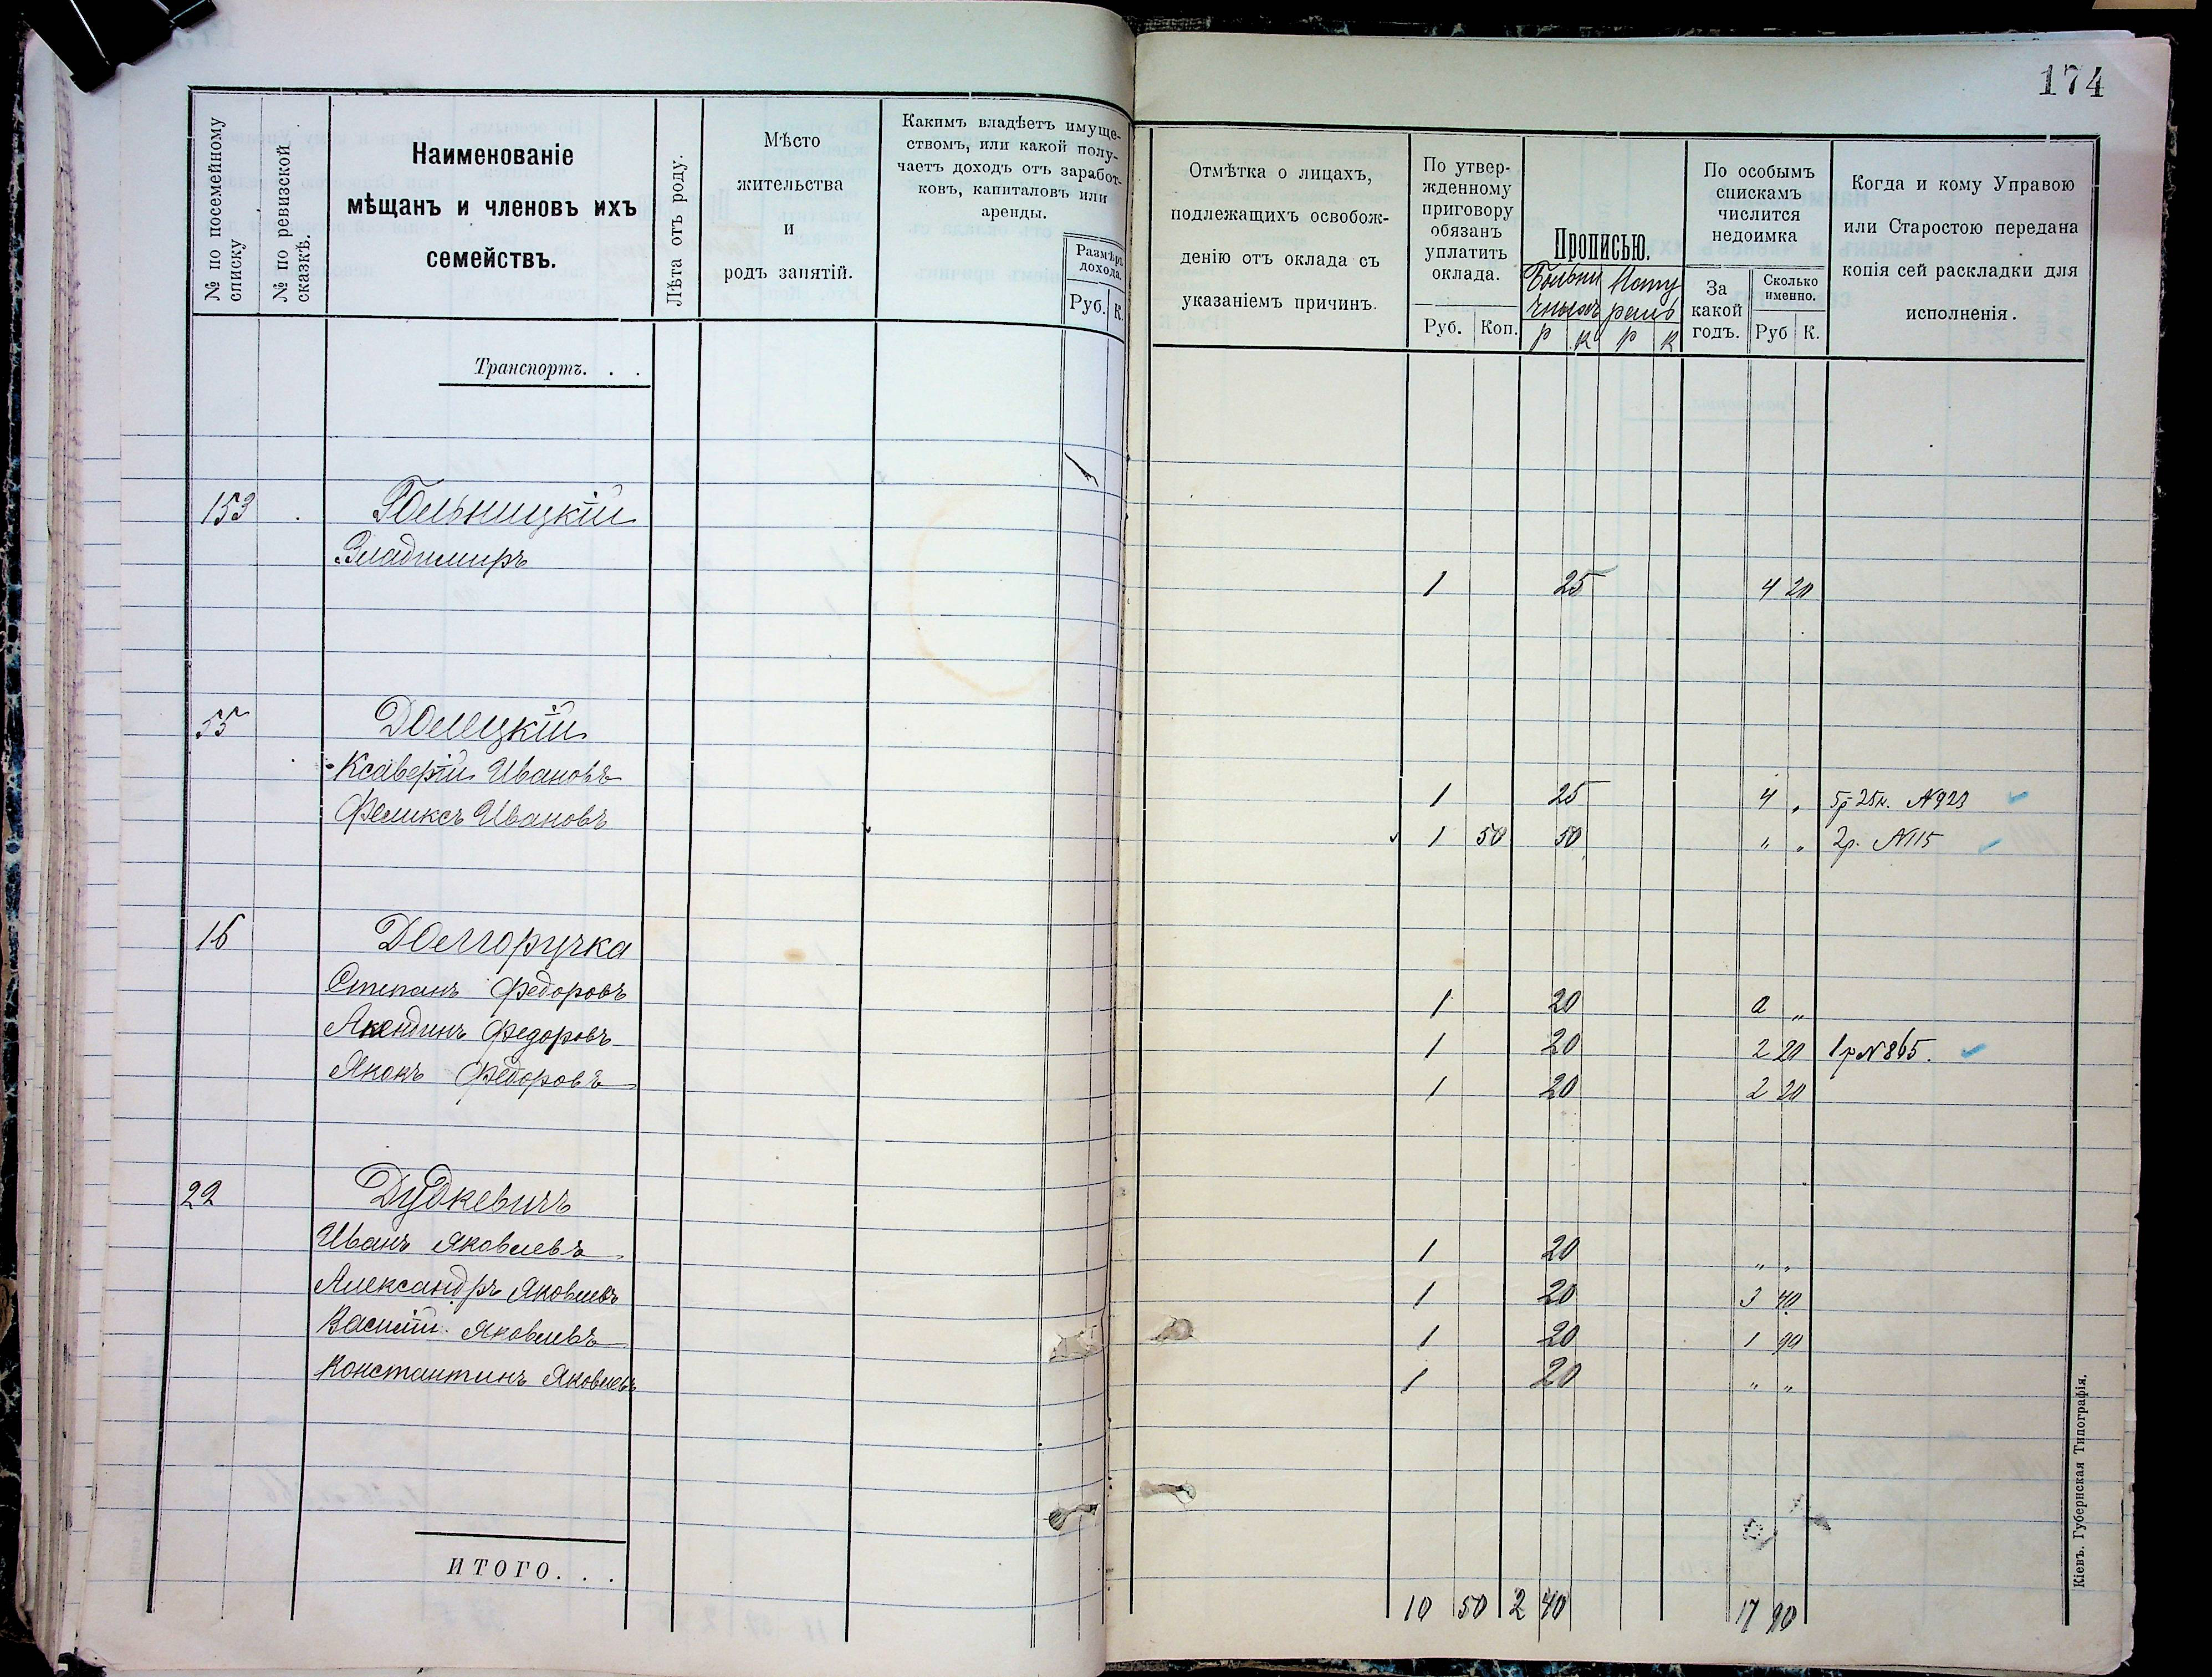 174
№ по посемейному списку
№ по ревизской сказкѣ.
Наименованіе
мѣщанъ и членовъ ихъ
семействъ.
Лѣта отъ роду.
Мѣсто
жительства
и
родъ занятій.
Какимъ владѣетъ имуще-
ствомъ, или какой полу-
чаетъ доходъ отъ заработ-
ковъ, капиталовъ или
аренды.
Размѣръ
дохода.
Руб. К.
Отмѣтка о лицахъ,
подлежащихъ освобож-
денію отъ оклада съ
указаніемъ причинъ.
По утвер-
жденному
приговору
обязанъ
уплатить
оклада.
Руб. Коп.
Прописью.
Р К Р К
По особымъ
спискамъ
числится
недоимка
За
какой
годъ.
Сколько
именно.
Руб К.
Когда и кому Управою
или Старостою передана
копія сей раскладки для
исполненія.
Транспортъ. . .
153
Владимиръ 1 25 4 20
55 Долецкій
Ксаверій Ивановъ 1 25 4 „ 5р 25к. №923
Феликсъ Ивановъ 1 50 50 „ „ 2р. №115
16 Долгоручка
Степанъ Федоровъ 1 20 „
Федоровъ 1 20 2 20 1р №865.
Федоровъ 1 20 2 20
22 Дудкевичъ
Иванъ Яковлевъ 1 20 „ „
Александръ Яковлевъ 1 20 3 40
Василій Яковлевъ 1 20 1 90
Константинъ Яковлевъ 1 20 „ „
ИТОГО. . . 10 50 2 40 17 90
Кіевъ. Губернская Типографія.